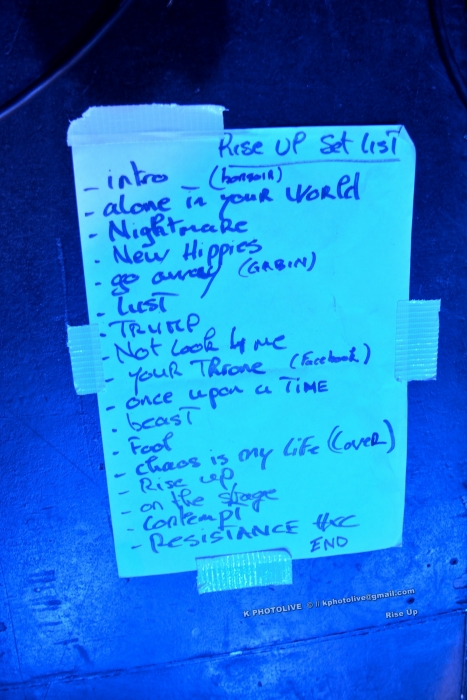 Rise UP Set list
- intro (bonsoir)
- alone in your WORLD
- Nightmare
- New Hippies
- go away (GABIN)
- LUST
- TRUMP
- Not Look 4 me
- your Throne (Facebook)
- once upon a TIME
- beast
- Fool
- chaos is my Life (Cover)
- Rise up
- on the stage
- contempt
- RESISTANCE HxC
END
K PHOTOLIVE © // kphotolive@gmail.com
Rise Up